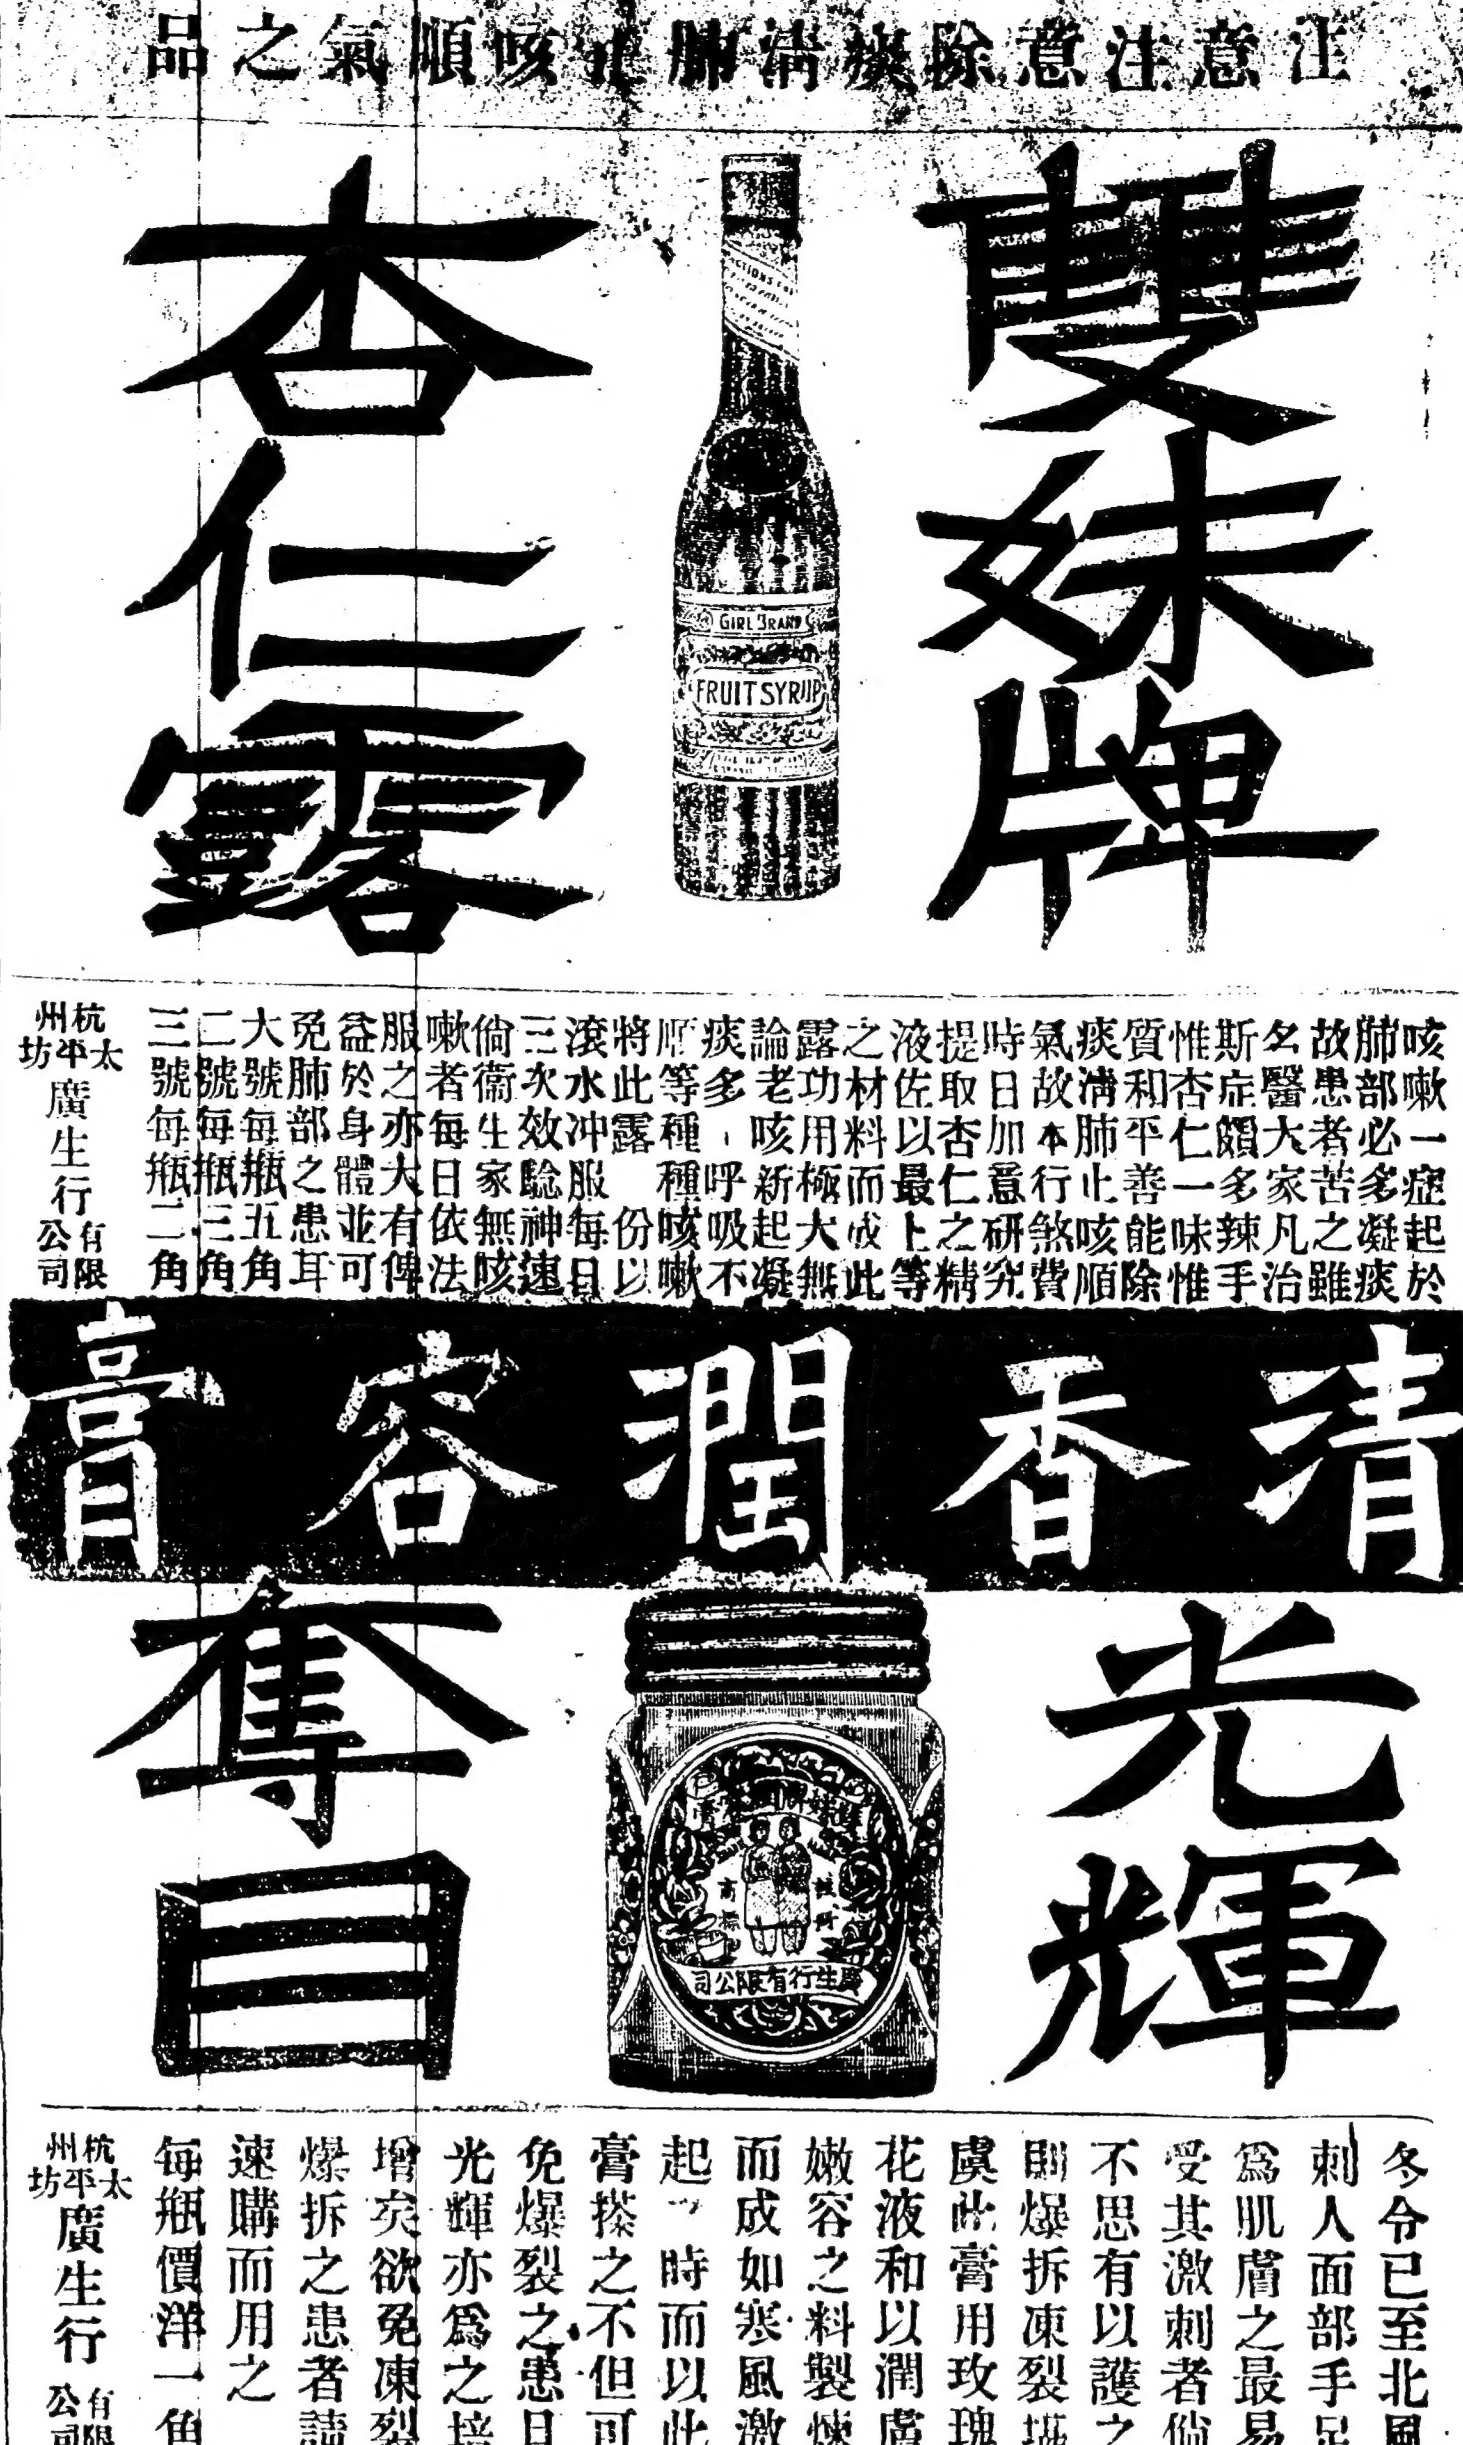 注意注意除痰清肺止咳順氣之品
雙妹牌
杏仁露
GIRL BRAND
FRUIT SYRUP
咳嗽一症起於
肺部必多凝痰
故患者苦之雖
名醫大家凡治
斯症頗多辣手
惟杏仁一味惟
質和平善能除
痰清肺止咳順
氣故本行煞費
時日加意研究
提取杏仁之精
液佐以最上等
之材料而成此
露功用極大無
論老咳新起凝
痰多、呼吸不
順等種種咳嗽
將此露 份以
滾水冲服每日
三次效驗神速
倘衞生家無咳
嗽者每日依法
服之亦大有俾
益於身體並可
免肺部之患耳
大號每瓶五角
二號每瓶三角
三號每瓶二角
杭州太平坊廣生行有限公司
清香潤容膏
光輝
奪目
廣生行有限公司
冬令已至北風
刺人面部手足
為肌膚之最易
受其激刺者倘
不思有以護之
則爆拆凍裂堪
虞此膏用玫瑰
花液和以潤膚
嫩容之料製煉
而成如寒風激
起 時而以此
膏搽之不但可
免爆裂之患日
光輝亦為之培
增矣欲免凍裂
爆拆之患者請
速購而用之
每瓶價洋一角
杭州太平坊廣生行有限公司